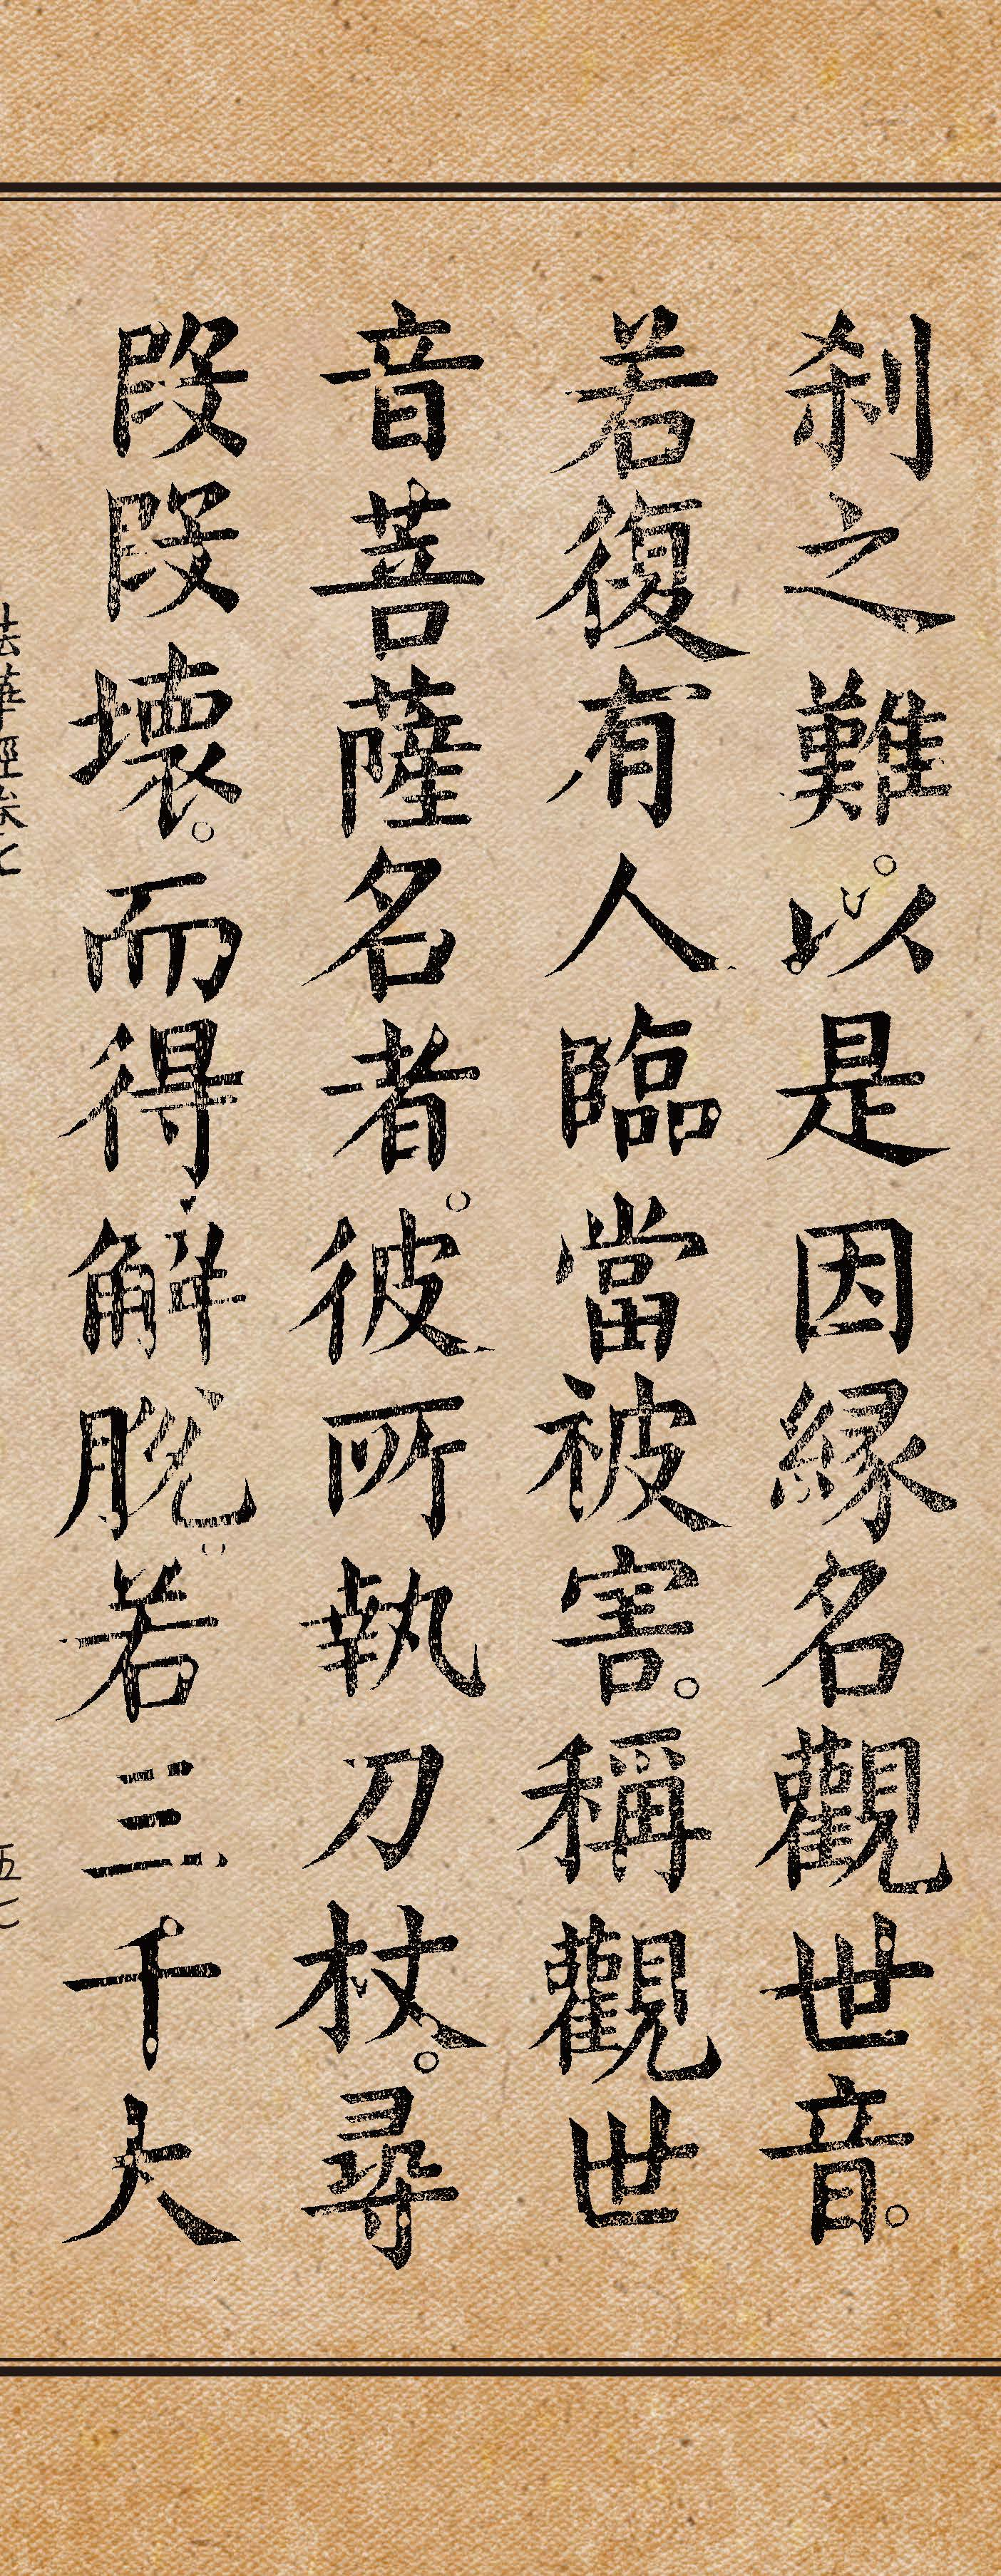 刹之難。以是因緣名觀世音。
若復有人臨當被害。稱觀世
音菩薩名者。彼所執刀杖。尋
段段壞。而得解脫。若三千大